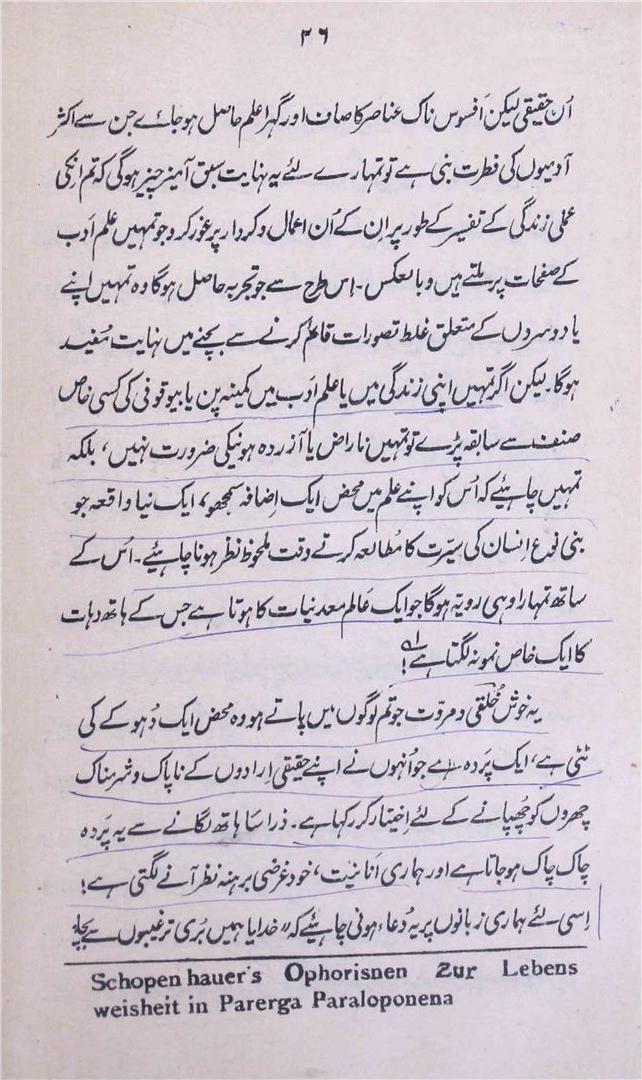 ۲۶
اُن حقیقی لیکن اَفسوس ناک عناصر کا صاف اور گہرا علم حاصل ہو جائے جن سے اکثر
آدمیوں کی فطرت بنی ہے تو تمہارے لئے یہ نہایت سبق آمیز چیز ہوگی کہ تم انکی
عملی زندگی کے تفسیر کے طور پر ان کے اُن اعمال و کردار پر غور کرو جو تمہیں علم اَدب
کے صفحات پر ملتے ہیں و بالعکس۔ اِس طرح سے جو تجربہ حاصل ہوگا وہ تمہیں اپنے
یا دوسروں کے متعلق غلط تصورات قائم کرنے سے بچنے میں نہایت مُفید
ہوگا۔ لیکن اگر تمہیں اپنی زندگی میں یا علم اَدب میں کمینہ پن یا بیوقوفی کی کسی خاص
صنف سے سابقہ پڑے تو تمہیں ناراض یا آزردہ ہونیکی ضرورت نہیں، بلکہ
تمہیں چاہئیے کہ اُس کو اپنے علم میں محض ایک اِضافہ سمجھو، ایک نیا واقعہ جو
بنی نوع اِنسان کی سیرت کا مُطالعہ کرتے وقت ملحوظ نظر ہونا چاہئیے۔ اُس کے
ساتھ تمہارا وہی رویہ ہوگا جو ایک عَالم معدنیات کا ہوتا ہے جس کے ہاتھ دہات
کا ایک خاص نمونہ لگتا ہے! ۱ے
یہ خوش خُلقی و مروّت جو تم لوگوں میں پاتے ہو وہ محض ایک دُہوکے کی
ٹٹی ہے، ایک پَردہ ہے جو اُنہوں نے اپنے حقیقی اِرادوں کے ناپاک و شرمناک
چہروں کو چُھپانے کے لئے اِختیار کر رکہا ہے۔ ذرا سا ہاتھ لگانے سے یہ پَردہ
چاک چاک ہو جاتا ہے اور ہماری اَنانیت، خود غرضی برہنہ نظر آنے لگتی ہے!
اِسی لئے ہماری زبانوں پر یہ دُعاء ہونی چاہئیے کہ "خدایا ہمیں بُری ترغیبوں سے بچا"
Schopen hauer's Ophorisnen Zur Lebens
weisheit in Parerga Paraloponena